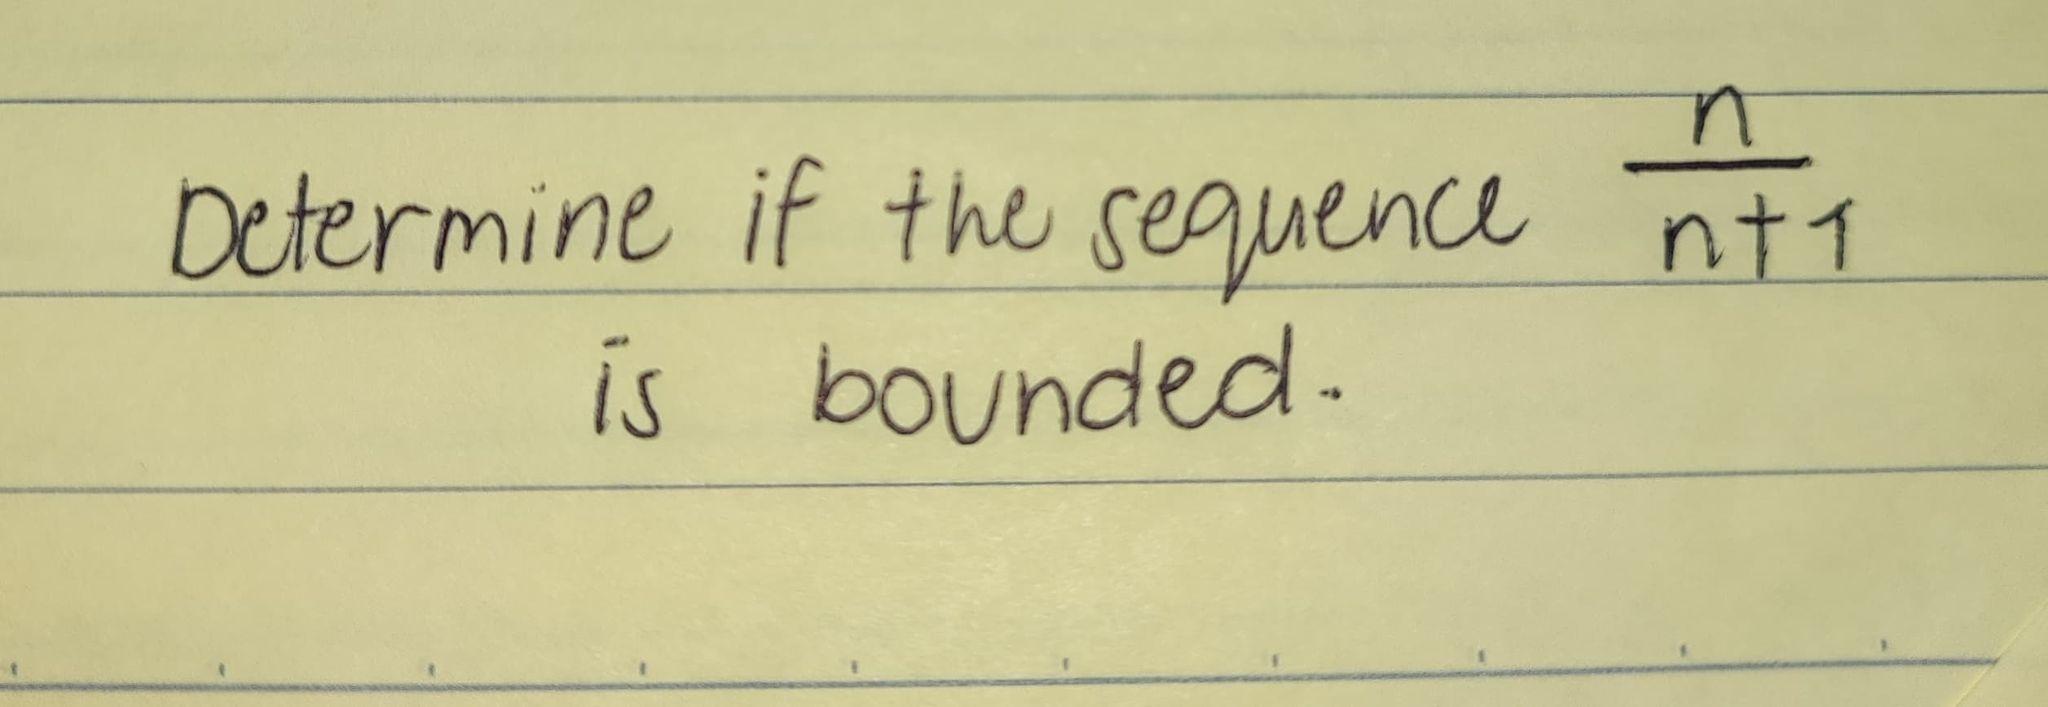 Determine if the sequence n/(n+1)
is bounded.